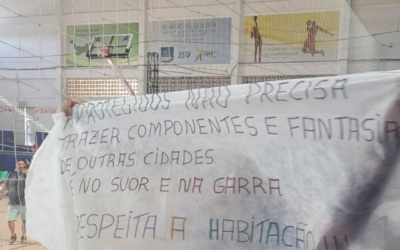 PROTEGIDOS NÃO PRECISA
TRAZER COMPONENTES E FANTASIA
DE OUTRAS CIDADES
É NO SUOR E NA GARRA
RESPEITA A HABITAÇÃO !!!